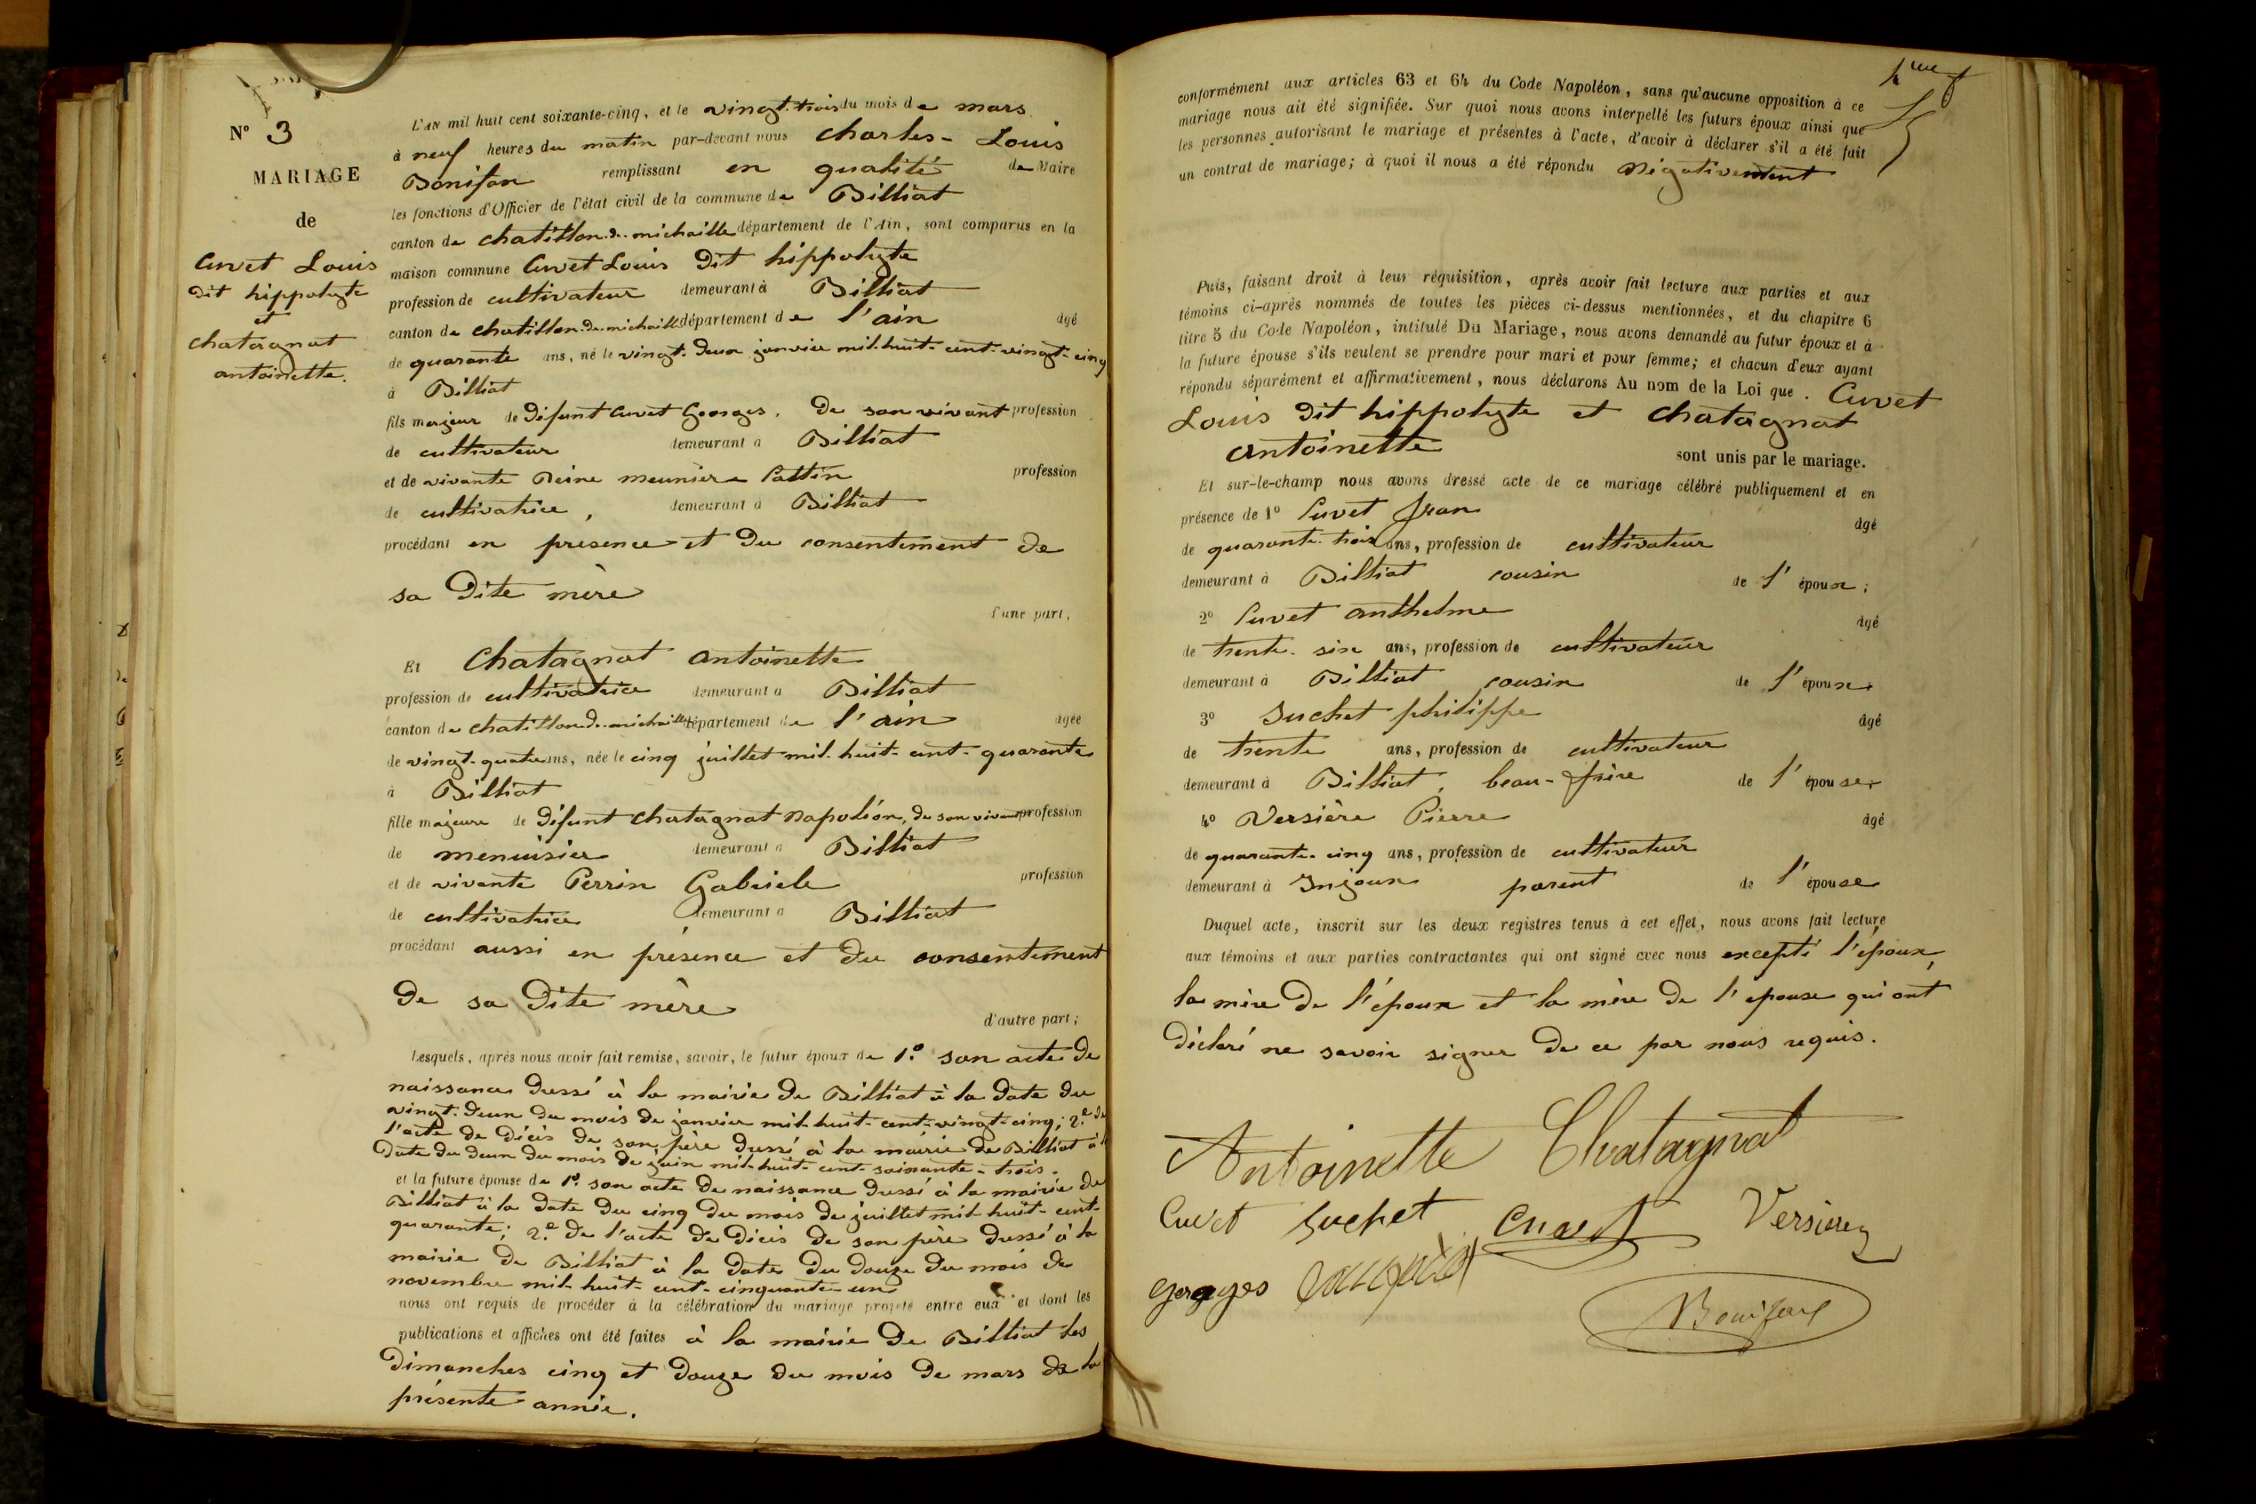 N° 3
MARIAGE
de
Cuvet Louis
dit hippolyte
et
chatagnat
antoinette.
L'AN mil huit cent soixante-cinq, et le vingt-trois du mois de mars
à neuf heures du matin par-devant nous Charles-Louis
Bonifan remplissant en qualité de Maire
les fonctions d'Officier de l'état civil de la commune de Billiat
canton de chatillon-de-michaille département de l'Ain, sont comparus en la
maison commune Cuvet Louis dit hippolyte
profession de cultivateur demeurant à Billiat
canton de chatillon-de-michaille département de l'ain âgé
de quarante ans, né le vingt-deux janvier mil-huit-cent-vingt-cinq
à Billiat
fils majeur de défunt Cuvet Georges, de son vivant profession
de cultivateur demeurant à Billiat
et de vivante Reine meunière Cattin profession
de cultivatrice, demeurant à Billiat
procédant en présence et du consentement de
sa dite mère
d'une part,
Et Chatagnat antoinette
profession de cultivatrice demeurant à Billiat
canton de chatillon-de-michaille département de l'ain âgée
de vingt-quatre ans, née le cinq juillet mil-huit-cent-quarante
à Billiat
fille majeure de défunt Chatagnat Napoléon, de son vivant profession
de menuisier demeurant à Billiat
et de vivante Perrin Gabriele profession
de cultivatrice demeurant à Billiat
procédant aussi en présence et du consentement
de sa dite mère
d'autre part;
Lesquels, après nous avoir fait remise, savoir, le futur époux de 1.° son acte de
naissance dressé à la mairie de Billiat à la date du
vingt-deux du mois de janvier mil-huit-cent-vingt-cinq; 2.° de
l'acte de décès de son père dressé à la mairie de Billiat à la
date du deux du mois de juin mil-huit-cent-soixante-trois.
et la future épouse de 1.° son acte de naissance dressé à la mairie de
Billiat à la date du cinq du mois de juillet mil-huit-cent-
quarante; 2.° de l'acte de décès de son père dressé à la
mairie de Billiat à la date du douze du mois de
novembre mil-huit-cent-cinquante-un
nous ont requis de procéder à la célébration du mariage projeté entre eux et dont les
publications et affiches ont été faites à la mairie de Billiat les
dimanches cinq et douze du mois de mars de la
présente année.
conformément aux articles 63 et 64 du Code Napoléon, sans qu'aucune opposition à ce
mariage nous ait été signifiée. Sur quoi nous avons interpellé les futurs époux ainsi que
les personnes autorisant le mariage et présentes à l'acte, d'avoir à déclarer s'il a été fait
un contrat de mariage; à quoi il nous a été répondu Négativement
Puis, faisant droit à leur réquisition, après avoir fait lecture aux parties et aux
témoins ci-après nommés de toutes les pièces ci-dessus mentionnées, et du chapitre 6
titre 5 du Code Napoléon, intitulé Du Mariage, nous avons demandé au futur époux et à
la future épouse s'ils veulent se prendre pour mari et pour femme; et chacun d'eux ayant
répondu séparément et affirmativement, nous déclarons Au nom de la Loi que. Cuvet
Louis dit hippolyte et chatagnat
antoinette sont unis par le mariage.
Et sur-le-champ nous avons dressé acte de ce mariage célébré publiquement et en
présence de 1° Cuvet Jean âgé
de quarante-trois ans, profession de cultivateur
demeurant à Billiat cousin de l'époux;
2° Cuvet anthelme âgé
de trente-six ans, profession de cultivateur
demeurant à Billiat cousin de l'époux
3° Suchet philippe âgé
de trente ans, profession de cultivateur
demeurant à Billiat, beau-frère de l'épouse
4° Versière Pierre âgé
de quarante-cinq ans, profession de cultivateur
demeurant à Injoux parent de l'épouse
Duquel acte, inscrit sur les deux registres tenus à cet effet, nous avons fait lecture
aux témoins et aux parties contractantes qui ont signé avec nous excepté l'époux,
la mère de l'époux et la mère de l'épouse qui ont
déclaré ne savoir signer de ce par nous requis.
Antoinette Chatagnat
Cuvet Suchet Cuvet
Georges